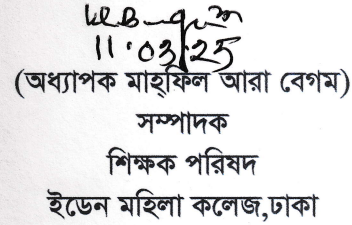 11.03.25
(অধ্যাপক মাহ্‌ফিল আরা বেগম)
সম্পাদক
শিক্ষক পরিষদ
ইডেন মহিলা কলেজ,ঢাকা